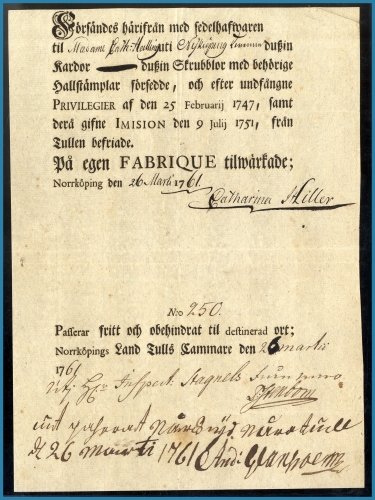 Försändes härifrån med sedelhafwaren
til Madame Cath: uti Nyköping dußin
Kardor dußin Skrubblor med behörige
Hallstämplar försedde, och efter undfångne
PRIVILEGIER af den 25 Februarij 1747, samt
derå gifne IMISION den 9 Julij 1751, från
Tullen befriade.
På egen FABRIQUE tilwärkade;
Norrköping den 26 Marti 1761.
Catharina Hiller
N:o 250.
Passerar fritt och obehindrat til destinerad ort;
Norrköpings Land Tulls Cammare den 26 martii
1761
Uti Hr Inspect. Stagnels
ut passerat
d 26 Marti 1761 And: